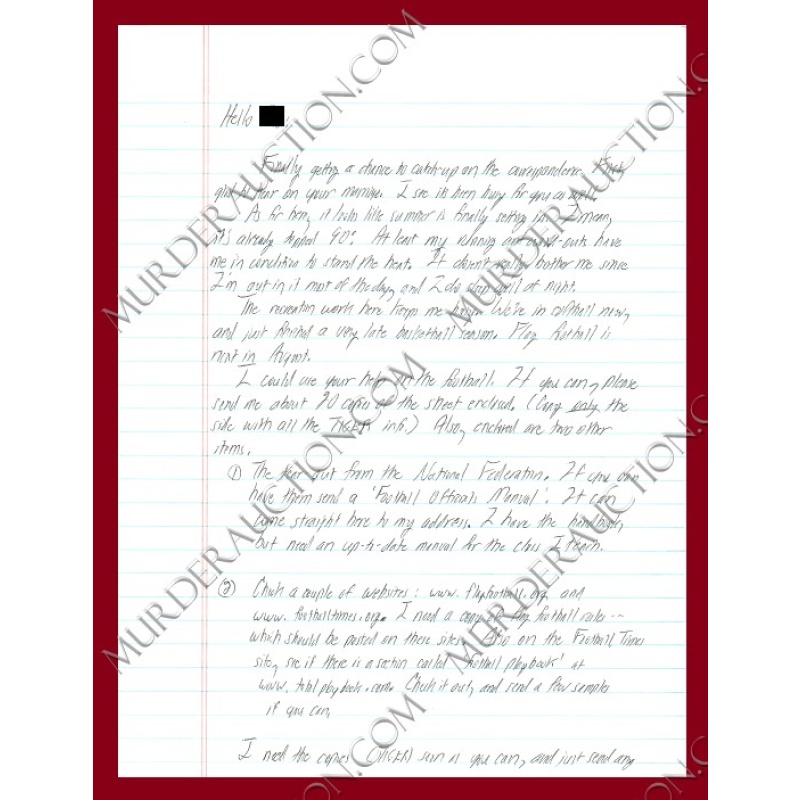 Hello
Finally getting a chance to catch-up on the correspondence.
to hear on your marriage. I see its been busy for you as well.
As far here, it looks like summer is finally setting in. I mean,
it's already topped 90°. At least my running and work-outs have
me in condition to stand the heat. It doesn't really bother me since
I'm out in it most of the day, and I do sleep well at night.
The recreation work here keeps me busy. We're in softball now,
and just finished a very late basketball season. Flag football is
next in August.
I could use your help on the football. If you can, please
send me about 20 copies of the street enclosed. (Copy only the
side with all the TIGER info.) Also, enclosed are two other
items.
① The tear out from the National Federation. If you can
have them send a 'Football Officials Manual'. It can
come straight here to my address. I have the handbook,
but need an up-to-date manual for the class I teach.
② Check a couple of websites: www. and
www. footballtimes.org. I need a copy of flag football rules --
which should be posted on these sites. Also on the Football Times
site, see if there is a section called 'football playbook' at
www. totalplaybook.com. Check it out, and send a few samples
if you can.
I need the copies (TIGER) soon as you can, and just send any
MURDERAUCTION.COM
MURDERAUCTION.COM
MURDERAUCTION.COM
MURDERAUCTION.COM